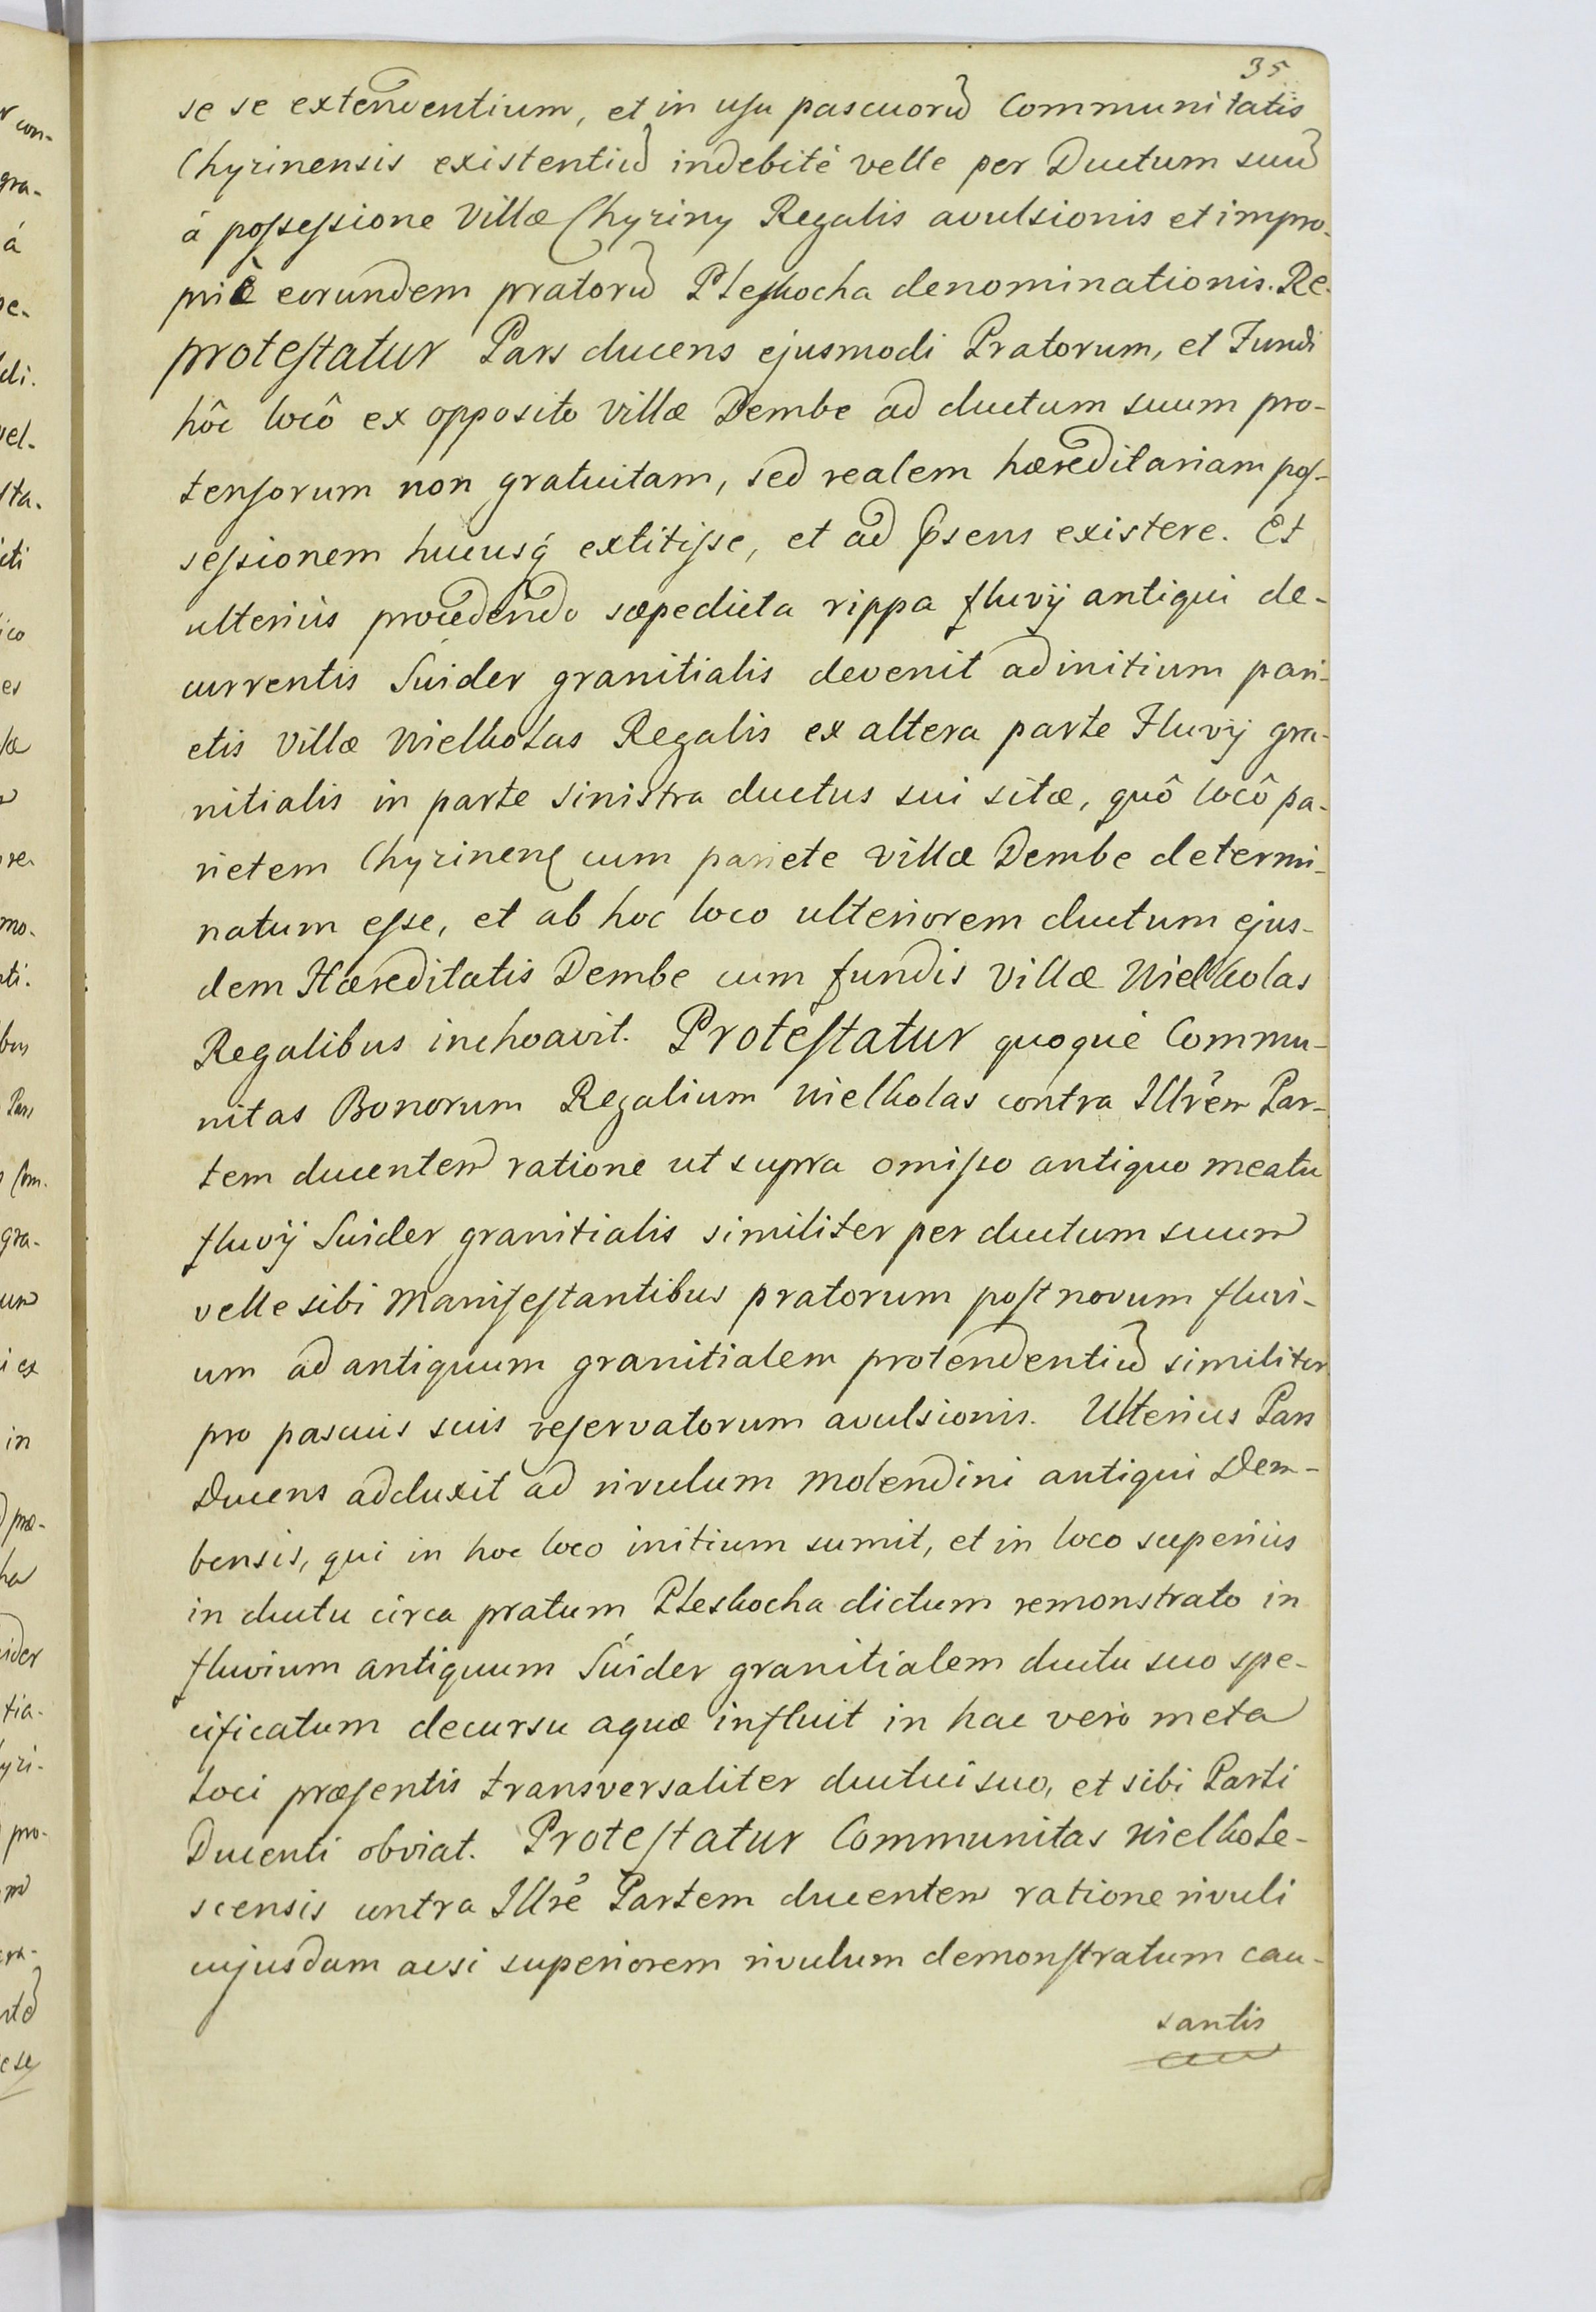 35
se se extendentium, et in usu pascuorũ Communitatis
Chyzinensis existentiũ indebitè velle per Ductum suũ
á poſseſsione Villæ Chyziny Regalis avulsionis et impro-
priè eorundem pratorũ Pleskocha denominationis. Re-
proteſtatur Pars ducens ejusmodi Pratorum, et Fundi
hôc locô ex opposito Villæ Dembe ad ductum suum pro-
tenſorum non gratuitam, sed realem hæreditariam poſ-
seſsionem hucusq́ extitiſse, et ad p̃sens existere. Et
ulteriùs procedendo sæpedicta rippa fluvij antiqui de-
currentis Swider granitialis devenit ad initium pari-
etis Villæ Wielkolas Regalis ex altera parte Fluvij gra-
nitialis in parte sinistra ductus sui sitæ, quô locô pa-
rietem Chyzinenſ cum pariete Villæ Dembe determi-
natum eſse, et ab hoc loco ulteriorem ductum ejus-
dem Hæreditatis Dembe cum fundis Villæ Wielkolas
Regalibus inchoavit. Proteſtatur quoque Commu-
nitas Bonorum Regalium Wielkolas contra Illr̃em Par-
tem ducentem ratione ut supra omiſso antiquo meatu
fluvij Swider granitialis similiter per ductum suum
velle sibi Manifeſtantibus pratorum poſt novum fluvi-
um ad antiquum granitialem protendentiũ similiter
pro pascuis suis reſervatorum avulsionis. Ulterius Pars
Ducens adduxit ad rivulum Molendini antiqui Dem-
bensis, qui in hoc loco initium sumit, et in loco superiùs
in ductu circa pratum Pleskocha dictum remonstrato in
fluvium antiquum Swider granitialem ductu suo spe-
cificatum decursu aquæ influit in hac verò meta
loci præſentis transversaliter ductui suo, et sibi Parti
Ducenti obviat. Proteſtatur Communitas Wielkole-
scensis contra Illr̃e Partem ducentem ratione rivuli
cujusdam acsi superiorem rivulum demonſtratum cau-
santis